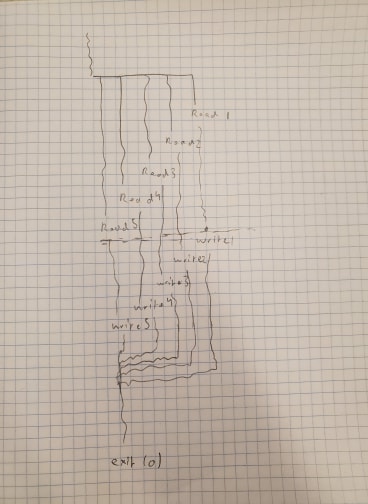 Read 1
Read2
Read3
Read4
Read5
write1
write2
write3
write4
write5
exit (0)